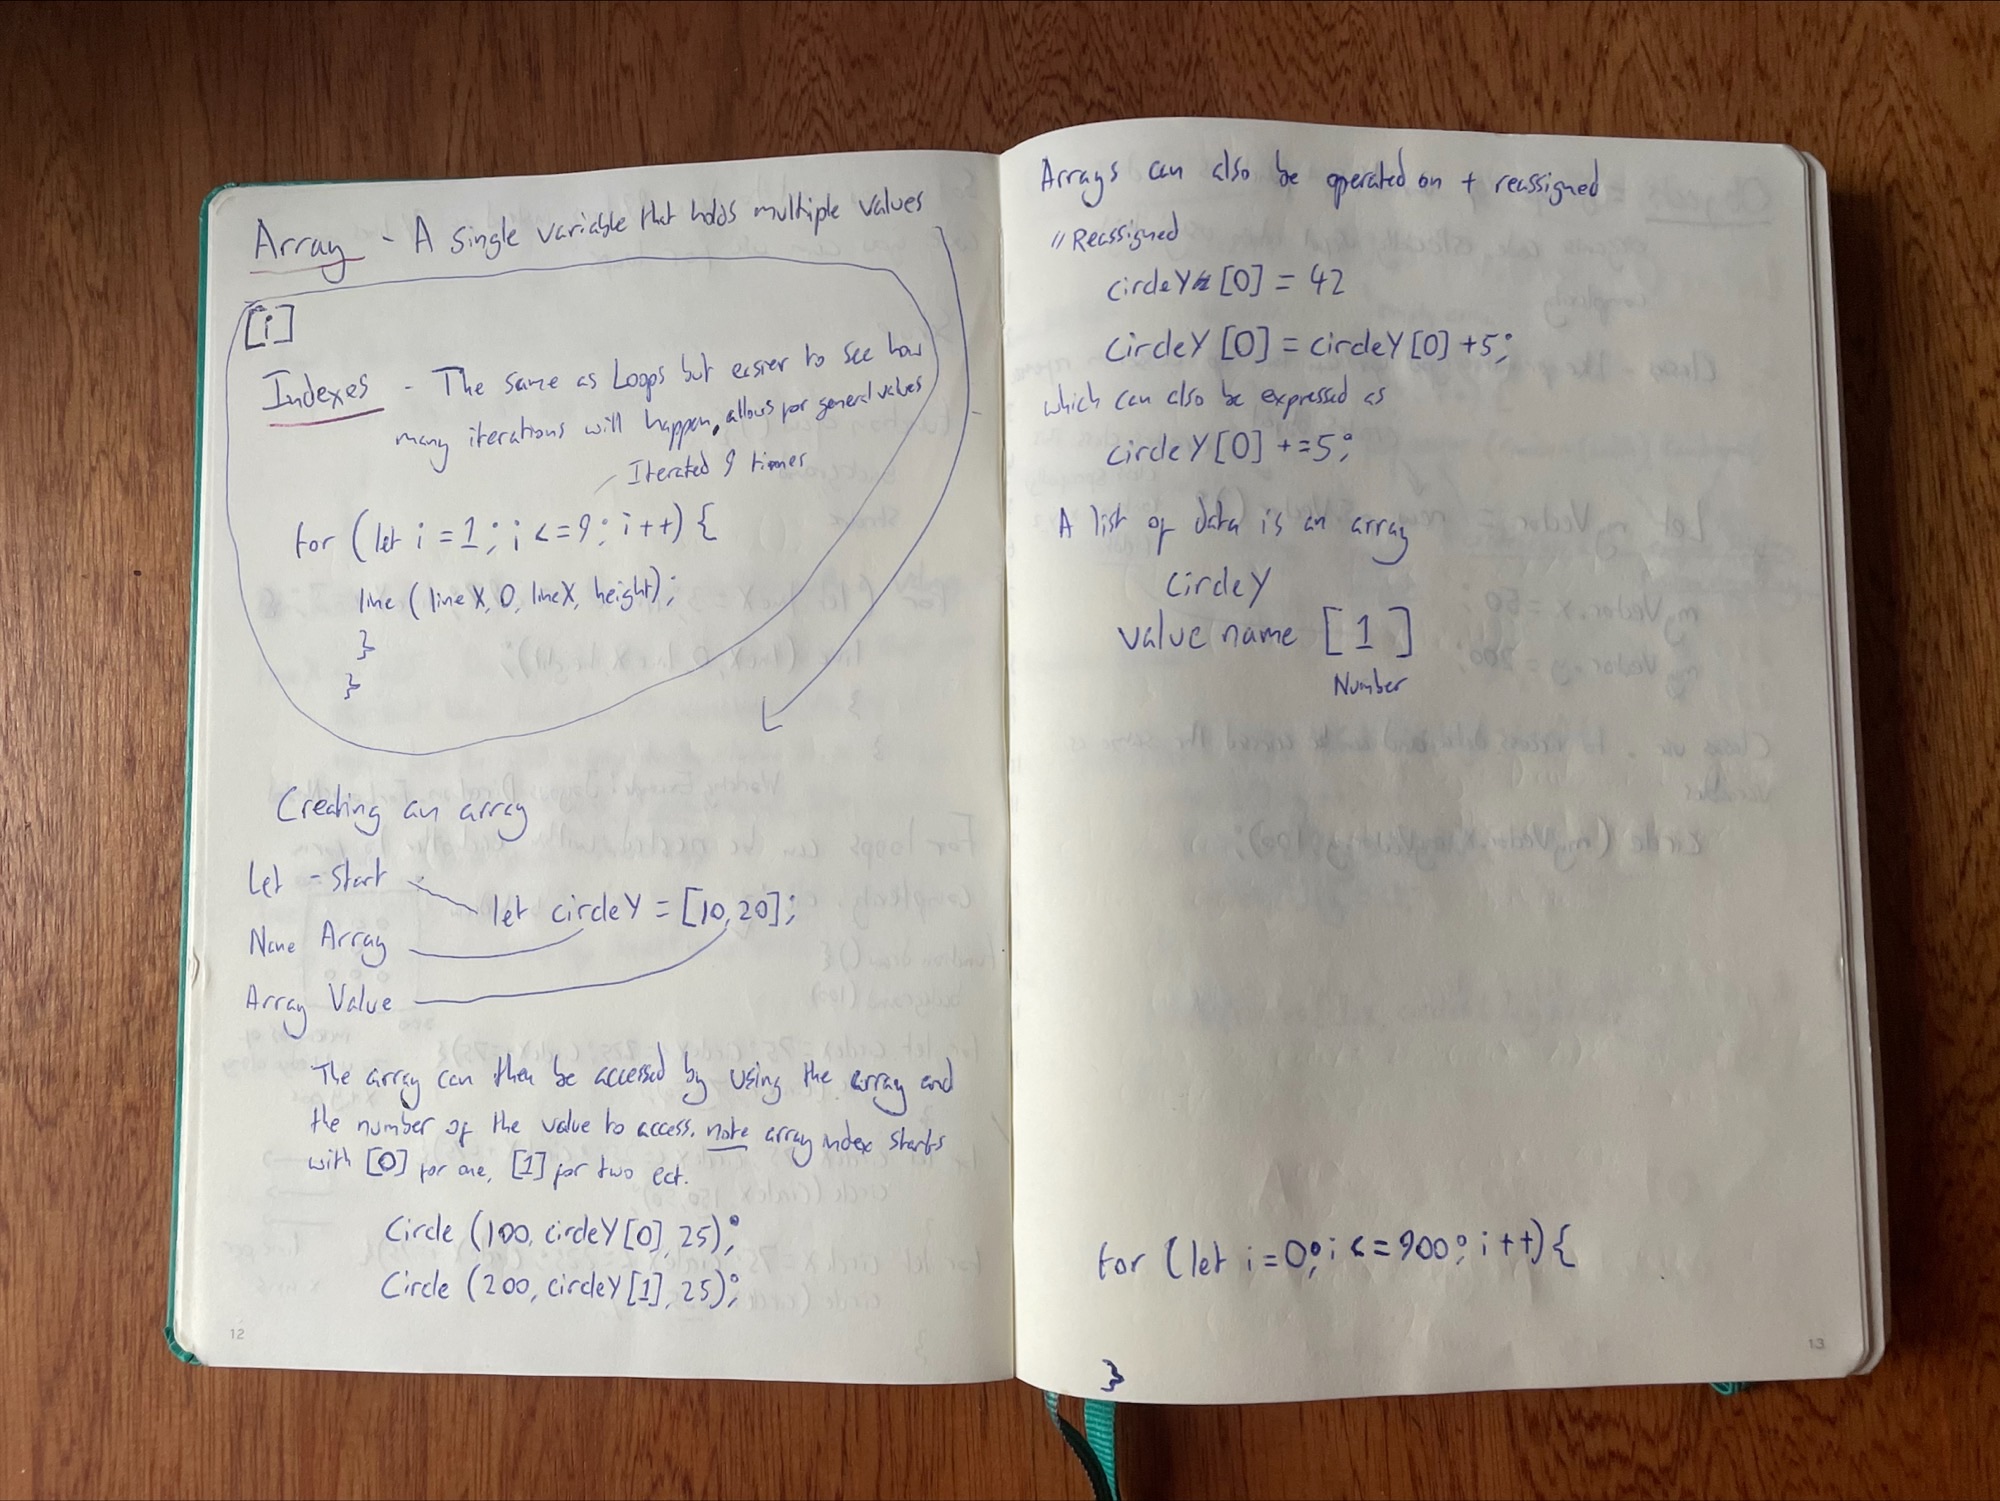 Array - A single variable that holds multiple values
[i]
Indexes - The same as Loops but easier to see how
many iterations will happen, allows for general values
Iterated 9 times
for (let i = 1; i <= 9; i++) {
line (lineX, 0, lineX, height);
}
}
Creating an array
Let - Start
let circleY = [10, 20];
Name Array
Array Value
The array can then be accessed by using the array and
the number of the value to access. note array index starts
with [0] for one, [1] for two ect.
Circle (100, circleY[0], 25);
Circle (200, circleY[1], 25);
12
Arrays can also be operated on + reassigned
// Reassigned
circleY [0] = 42
circleY [0] = circleY [0] +5;
which can also be expressed as
circleY [0] +=5;
A list of data is an array
circleY
value name [1]
Number
for (let i=0; i <= 900; i++) {
}
13